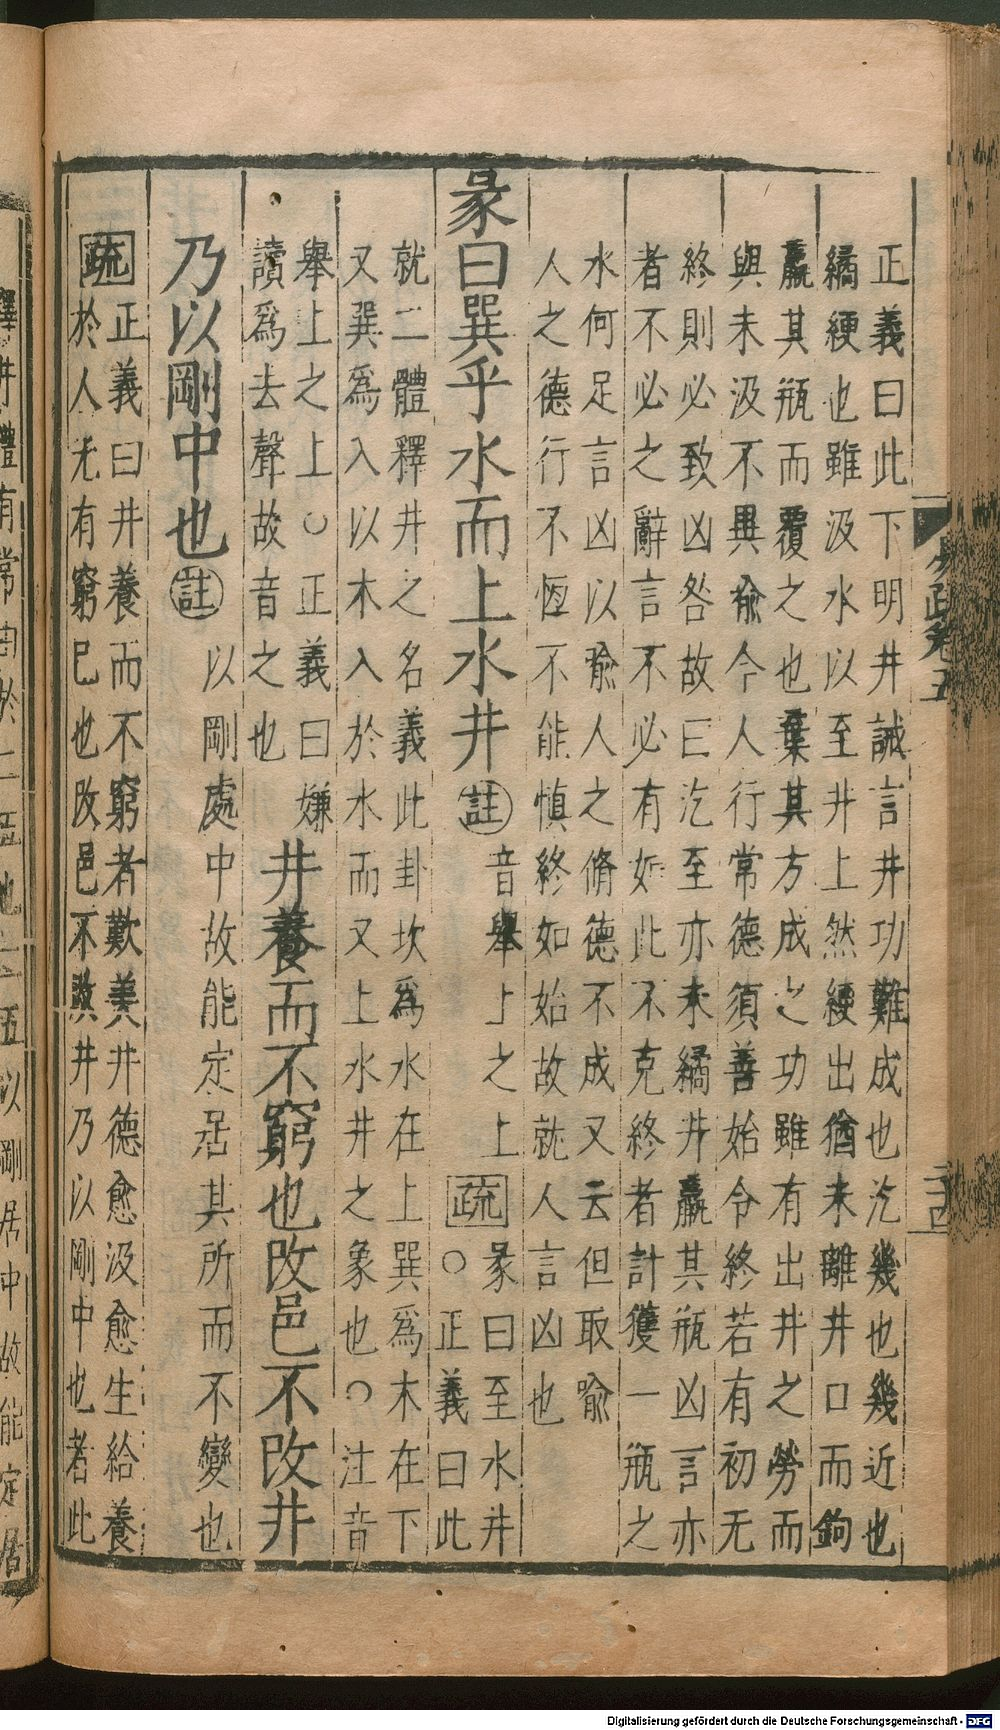 正義曰此下明井誡言井功難成也汔幾也幾近也
繘綆也雖汲水以至井上然綆出猶未離井口而鉤
羸其瓶而覆之也棄其方成之功雖有出井之勞而
與未汲不異喻今人行常德須善始令終若有初无
終則必致凶咎故曰汔至亦未繘井羸其瓶凶言亦
者不必之辭言不必有如此不克終者計獲一瓶之
水何足言凶以喻人之脩德不成又云但取喻
人之德行不恆不能慎終如始故就人言凶也
彖曰巽乎水而上水井
註
音舉上之上
疏
彖曰至水井
○正義曰此
就二體釋井之名義此卦坎爲水在上巽爲木在下
又巽爲入以木入於水而又上水井之象也○注音
舉上之上○正義曰嫌
讀爲去聲故音之也
井養而不窮也改邑不改井
乃以剛中也
註
以剛處中故能定居其所而不變也
疏
正義曰井養而不窮者歎美井德愈汲愈生給養
於人无有窮已也改邑不改井乃以剛中也者此
釋井體有常由於二五也二五以剛居中故能定居
Digitalisierung gefördert durch die Deutsche Forschungsgemeinschaft - DFG